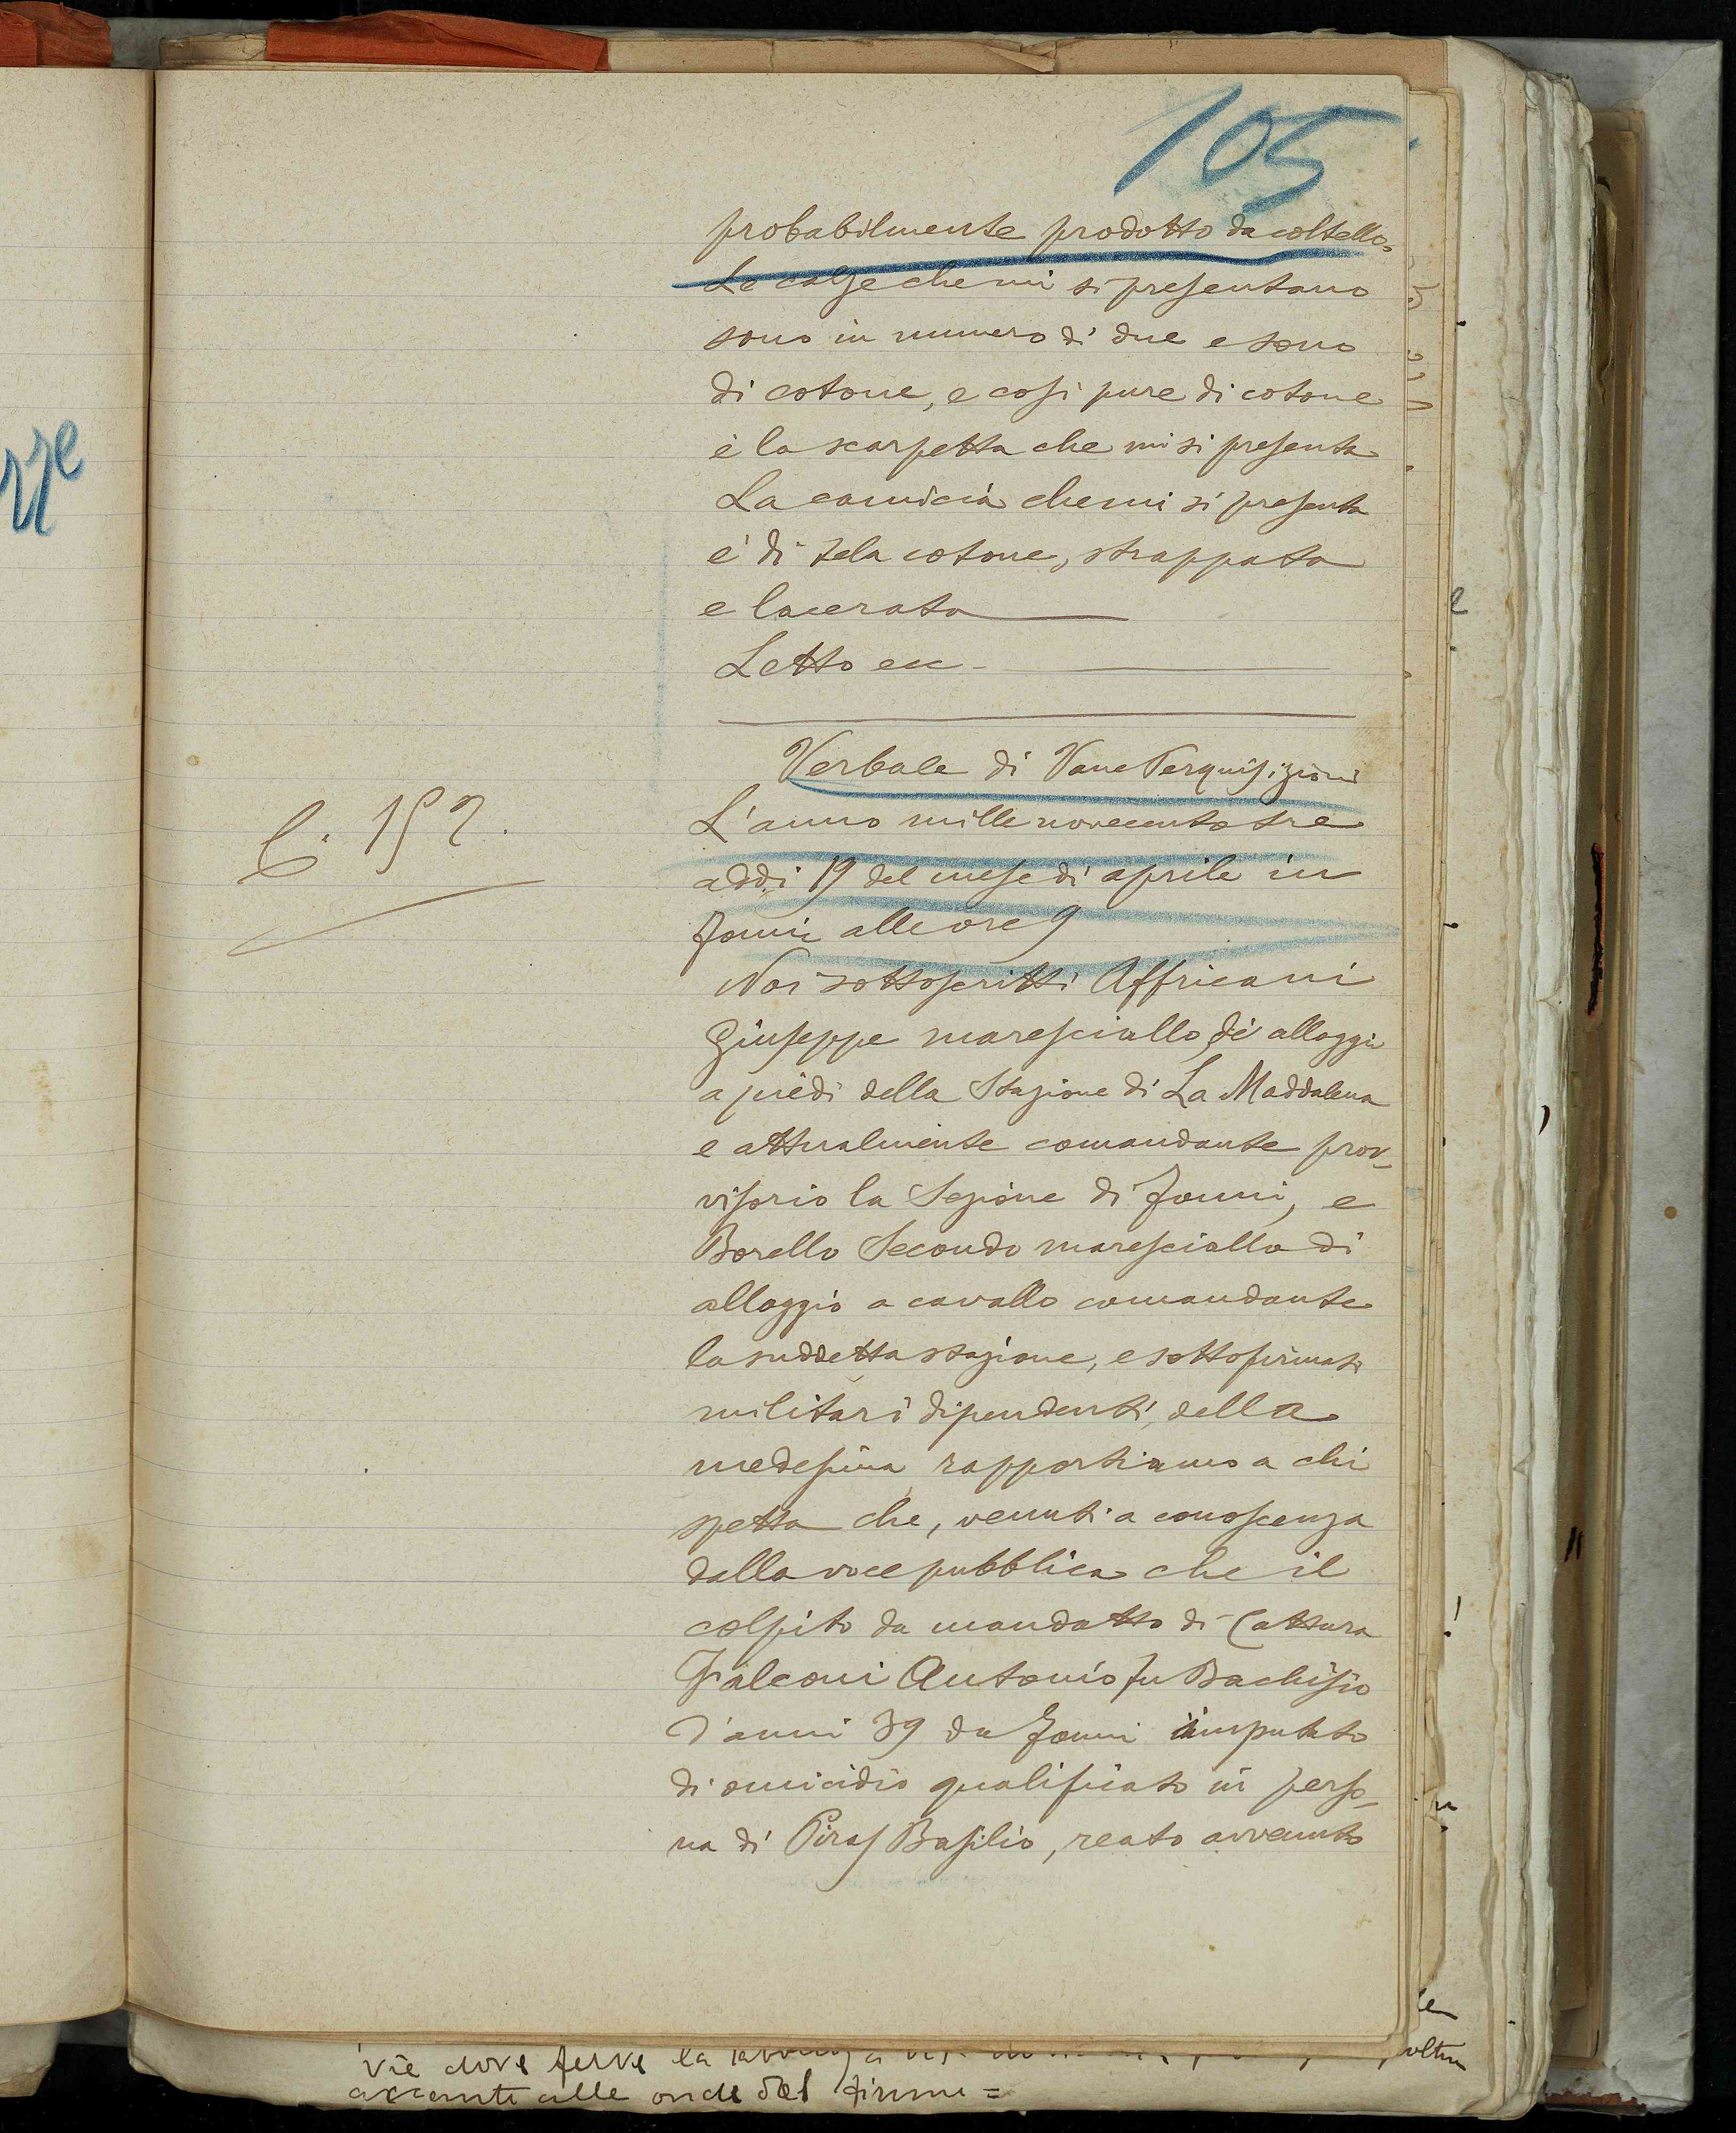 105
probabilmente prodotto da coltello.
Le calze che mi si presentano
sono in numero di due e sono
di cotone, e così pure di cotone
è la scarpetta che mi si presenta
La camicia che mi si presenta
é di tela cotone, strappata
e lacerata
Letto ecc -
Verbale di Vane Perquisizioni
L'anno mille novecento tre
addi 19 del mese di aprile in
Fonni alle ore 9
Noi sottoscritti Affricani
Giuseppe maresciallo di alloggio
a piedi della Stazione di La Maddalena
e attualmente comandante prov-
visorio la Sezione di Fonni, e
Borello Secondo maresciallo di
alloggio a cavallo comandante
la suddetta stazione, e sottofirmati
militari dipendenti, della
medesima rapportiamo a chi
spetta che, venuti a conoscenza
dalla voce pubblica che il
colpito da mandatto di Cattura
Falconi Antonio fu Bachisio
d'anni 39 da Fonni imputato
di omicidio qualificato in perso-
na di Piras Basilio, reato avvenuto
vie dove ferve la
accanto alle onde del fiume =